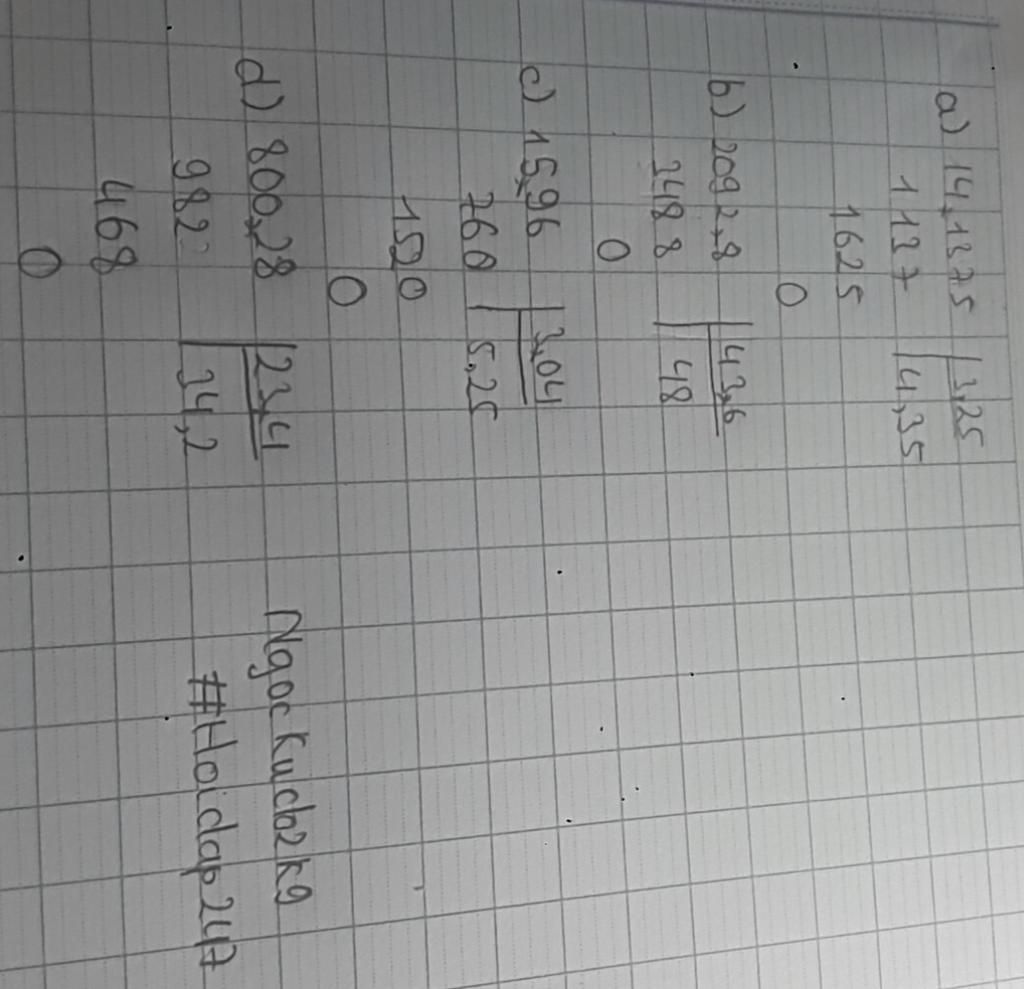 a) 14,1375 3,25
1137 4,35
1625
0
b) 2092,8 43,6
3488 48
0
c) 15,96 3,04
760 5,25
1520
0
d) 800,28 23,4
982 34,2
468
0
Ngockudo2k9
#Hoidap247